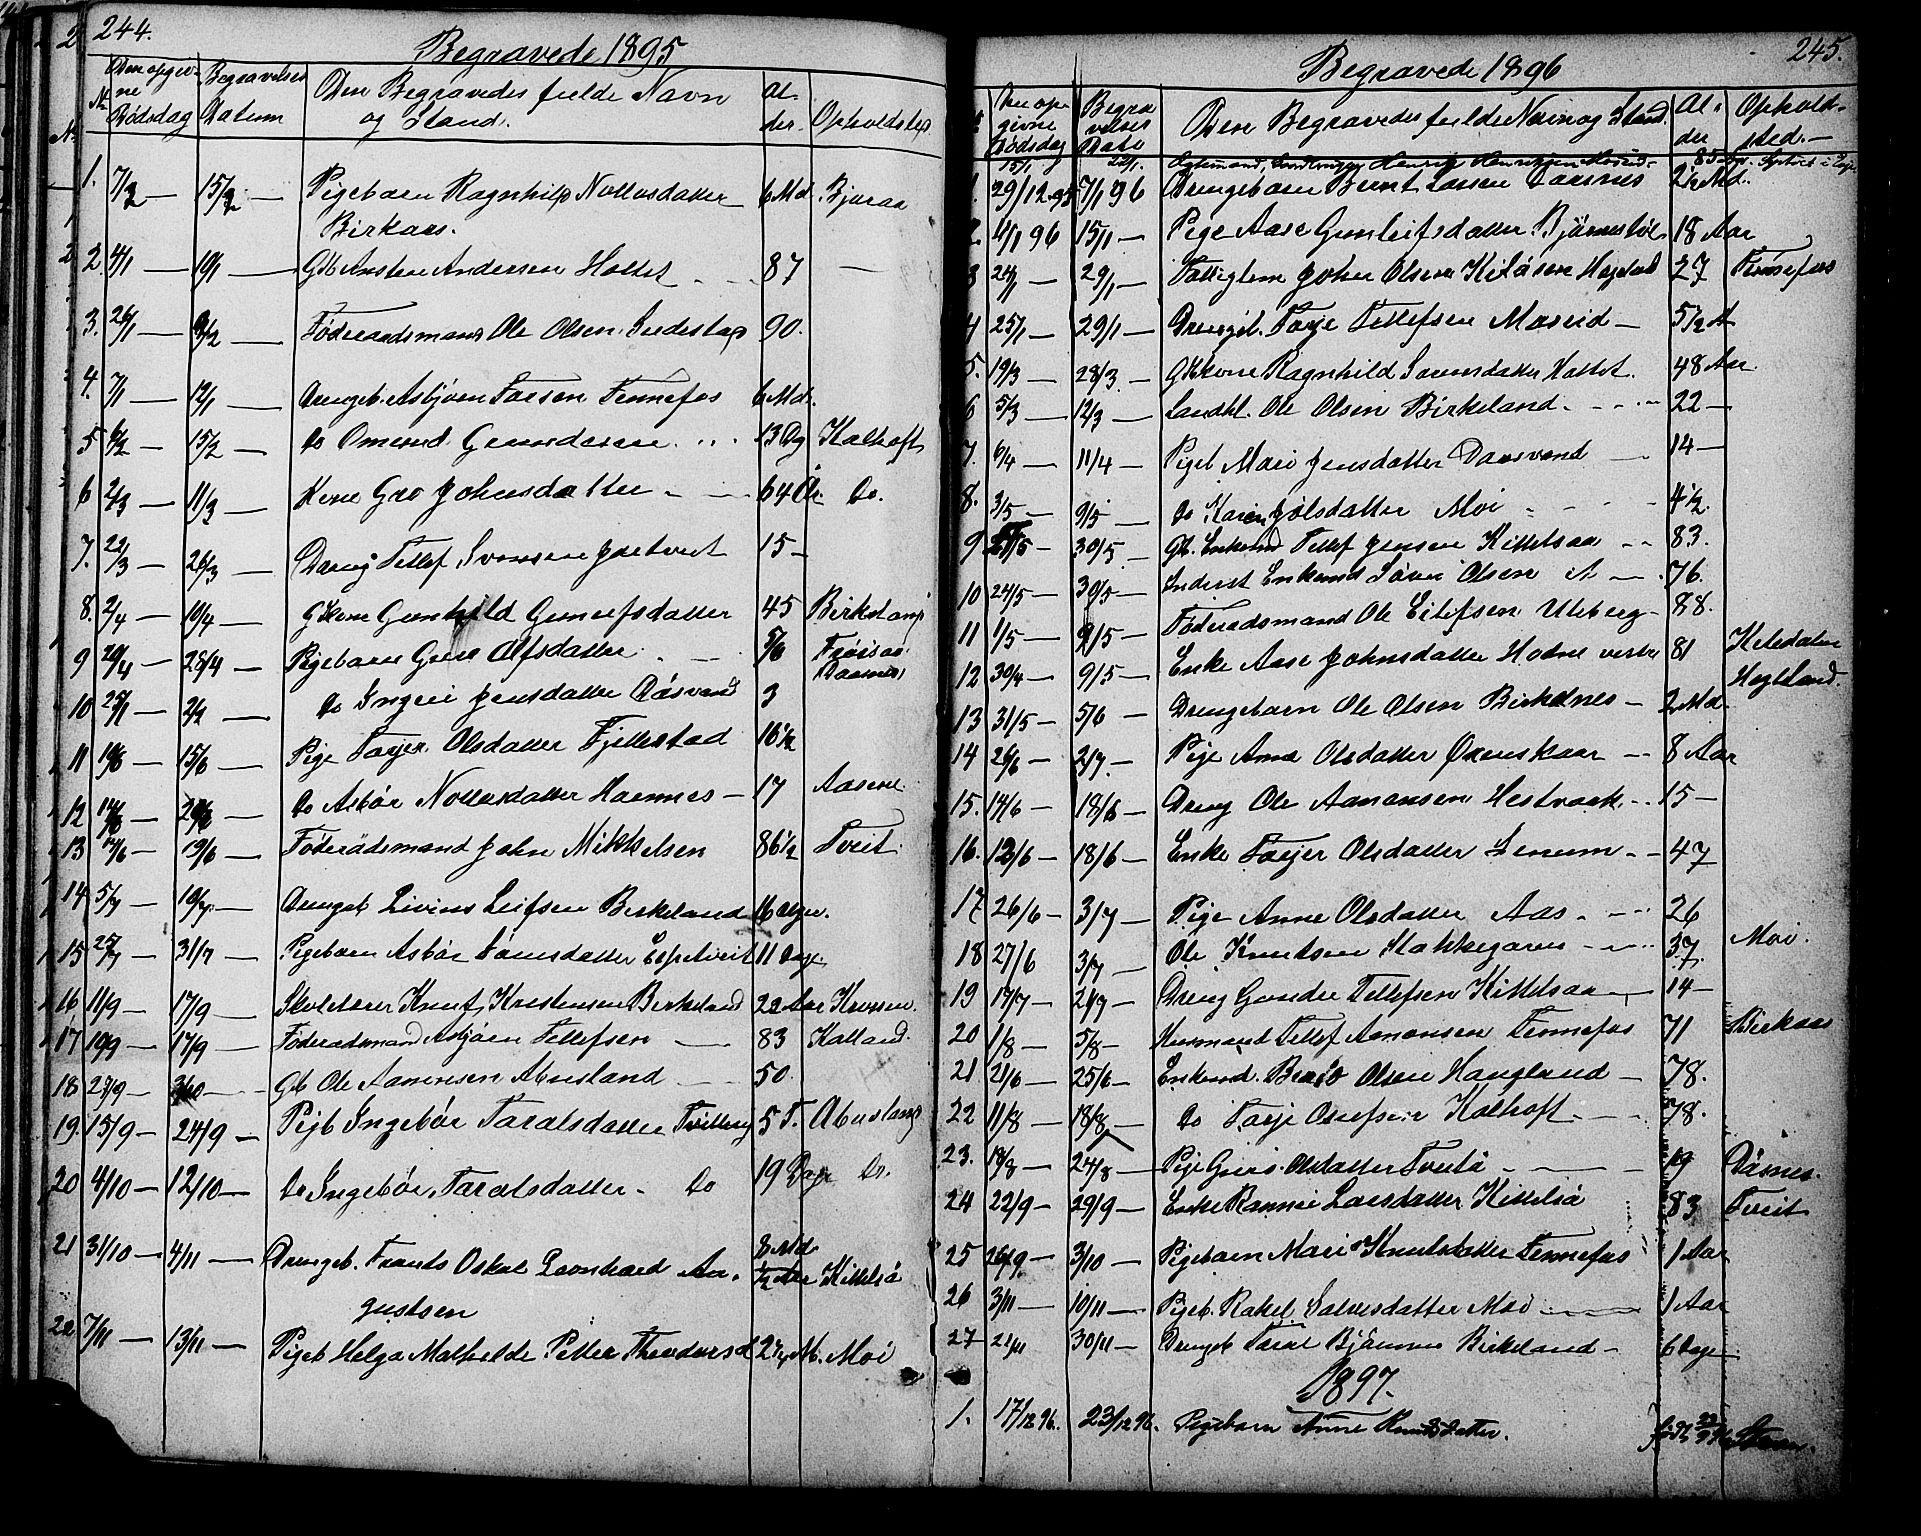 244.
Begravede 1895
No
Den opgivne Dødsdag
Begravelses Datum
Den Begravedes fulde Navn og Stand.
Alder.
Opholdsted
1. 7/2 — 15/2 — Pigebarn Ragnhild Nottosdatter 6 Md. Bjoraa
Birkaas.
2. 4/1 — 10/1 — Gb. Andersen Holtet 87 —
3. 26/1 — /2 — Føderaadsmand Ole Olsen 90.
4. 7/1 — 12/1 — Drengeb. Asbjørn Tennefos 6 Md.
5 6/2 — 15/2 — Do Omund Gundersen 13 Dg Kalhoft
6 2/3 — 11/3 — Kone Gro Johnsdatter 64 Do.
7. 22/3 — 26/3 — Dreng Tellef Svensen 15 —
8. 2/4 — 10/4 — Gkone Gunhild Gunleifsdatter 45 Birkeland
9 20/4 — 28/4 — Pigebarn Olfsdatter 5/6 Frøisaa
10 25/1 — 2/2 — Do Ingeri Jensdatter Dåsvand 3
11 10/6 — 15/6 — Pige Tarjer Olsdatter Fjellestad 16 1/2
12 Do Asbør Nottosdatter Haennes — 17 Aasene
13 /6 — 19/6 — Føderådsmand John Mikkelsen 86 1/2 Tveit.
14 5/7 — 10/7 — Drengeb Livius Leifsen Birkeland 16 Dger.
15 25/7 — 31/7 — Pigebarn Asbør 11 Dage
16 11/9 — 17/9 — Skolelærer Knut Kristensen Birkeland 22 Aar
17 10/9 — 17/9 — Føderaadsmand Asbjørn Tellefsen — 83 Kalland.
18 27/9 — 3/10 — Gb Ole Aanensen Abusland — 50.
19. 15/9 — 24/9 — Pigb Ingebør Taralsdatter Tvilling 5 T. Abusland
20 4/10 — 12/10 — Do Ingebør Taralsdatter — Do 19 Dage Do.
21 31/10 — 4/11 — Drengeb. Frants Oskar Leonhard Au- 8 Md. Kittelså
gustsen
22 7/11 — 13/11 — Pigeb Helga Mathilde Petter Theodorsd 2 M. Moi
245.
Begravede 1896
Den opgivne Dødsdag
Begravelses Dato
Den Begravedes fulde Navn og Stand
Alder
Opholdsted. —
15/1 22/1. Henrik Henriksen 85
1. 29/12 95 7/1 96 Drengebarn Bernt Larsen Daasnes 2 1/2 Md.
2. 4/1 96 15/1 — Pige Aase Gunleifsdatter 18 Aar
3 24/1 — 29/1 — Fattiglem John Olsen Kilåsen Hegland 27 Tennefos
4 25/1 — 29/1 — Drengb. Tarje Tellefsen — 5 1/2 A
5. 19/3 — 28/3 — Gkone Ragnhild Holtet. 48 Aar
6 5/3 — 12/3 — Landhl. Ole Olsen Birkeland. 22 —
7. 6/4 — 11/4 — Pigeb Mari Jensdatter Daasvand — 14 —
8. 3/5 — 9/5 — Do Karen Jølsdatter Moi 4 1/2.
9 /5 — 30/5 — Gb. Enkemd Tellef Jensen Kittelsaa 83.
10 24/5 — 30/5 — Inderst Enkemd Søren Olsen 76.
11 1/5 — 9/5 — Føderådsmand Ole Eilefsen Uleberg — 88.
12 30/4 — 9/5 — Enke Aase Johnsdatter Hodne vestre 81 Kiledalen
Hegland.
13 31/5 — 5/6 — Drengebarn Ole Olsen Birkenes — 2 Md.
14 26/6 — 2/7. — Pige Anne Olsdatter 8 Aar
15. 14/6 — 18/6 — Dreng Ole Aanonsen Hestvaak 15 —
16. 12/6 — 18/6 — Enke Tarjer Olsdatter 47
17 26/6 — 3/7 — Pige Anne Olsdatter Aas. 26
18 27/6 3/7 — Ole Knutsen Stakkegaren 37. Moi.
19 17/7 — 21/7 — Dreng Gunder Tellefsen Kittelsaa 14 —
20 1/8 — 5/8 — Tellef Aanonsen Tennefos 71 Birkaas
21 21/6 — 25/6 — Enkemd. Olsen Haugland — 78.
22 11/8 — 18/8 — Do Tarje Kalhoft 78.
23. 19/8 — 24/8 — Pige Olsdatter Tveitå 19 Dåsnes
24 22/9 — 29/9 — Enke Larsdatter Kittelså 83 Tveit
25 26/9 — 3/10 — Pigebarn Mari Knutsdatter Tennefos 1 Aar
26 3/11 — 10/11 — Pigeb. Rakel Salvesdatter Moi 1 Aar
27 21/11 30/11 — Drengb Taral Birkeland — 6 Dage
1897.
1. 17/12 96. 23/12 96. Pigebarn Anne Knudsdatter. født